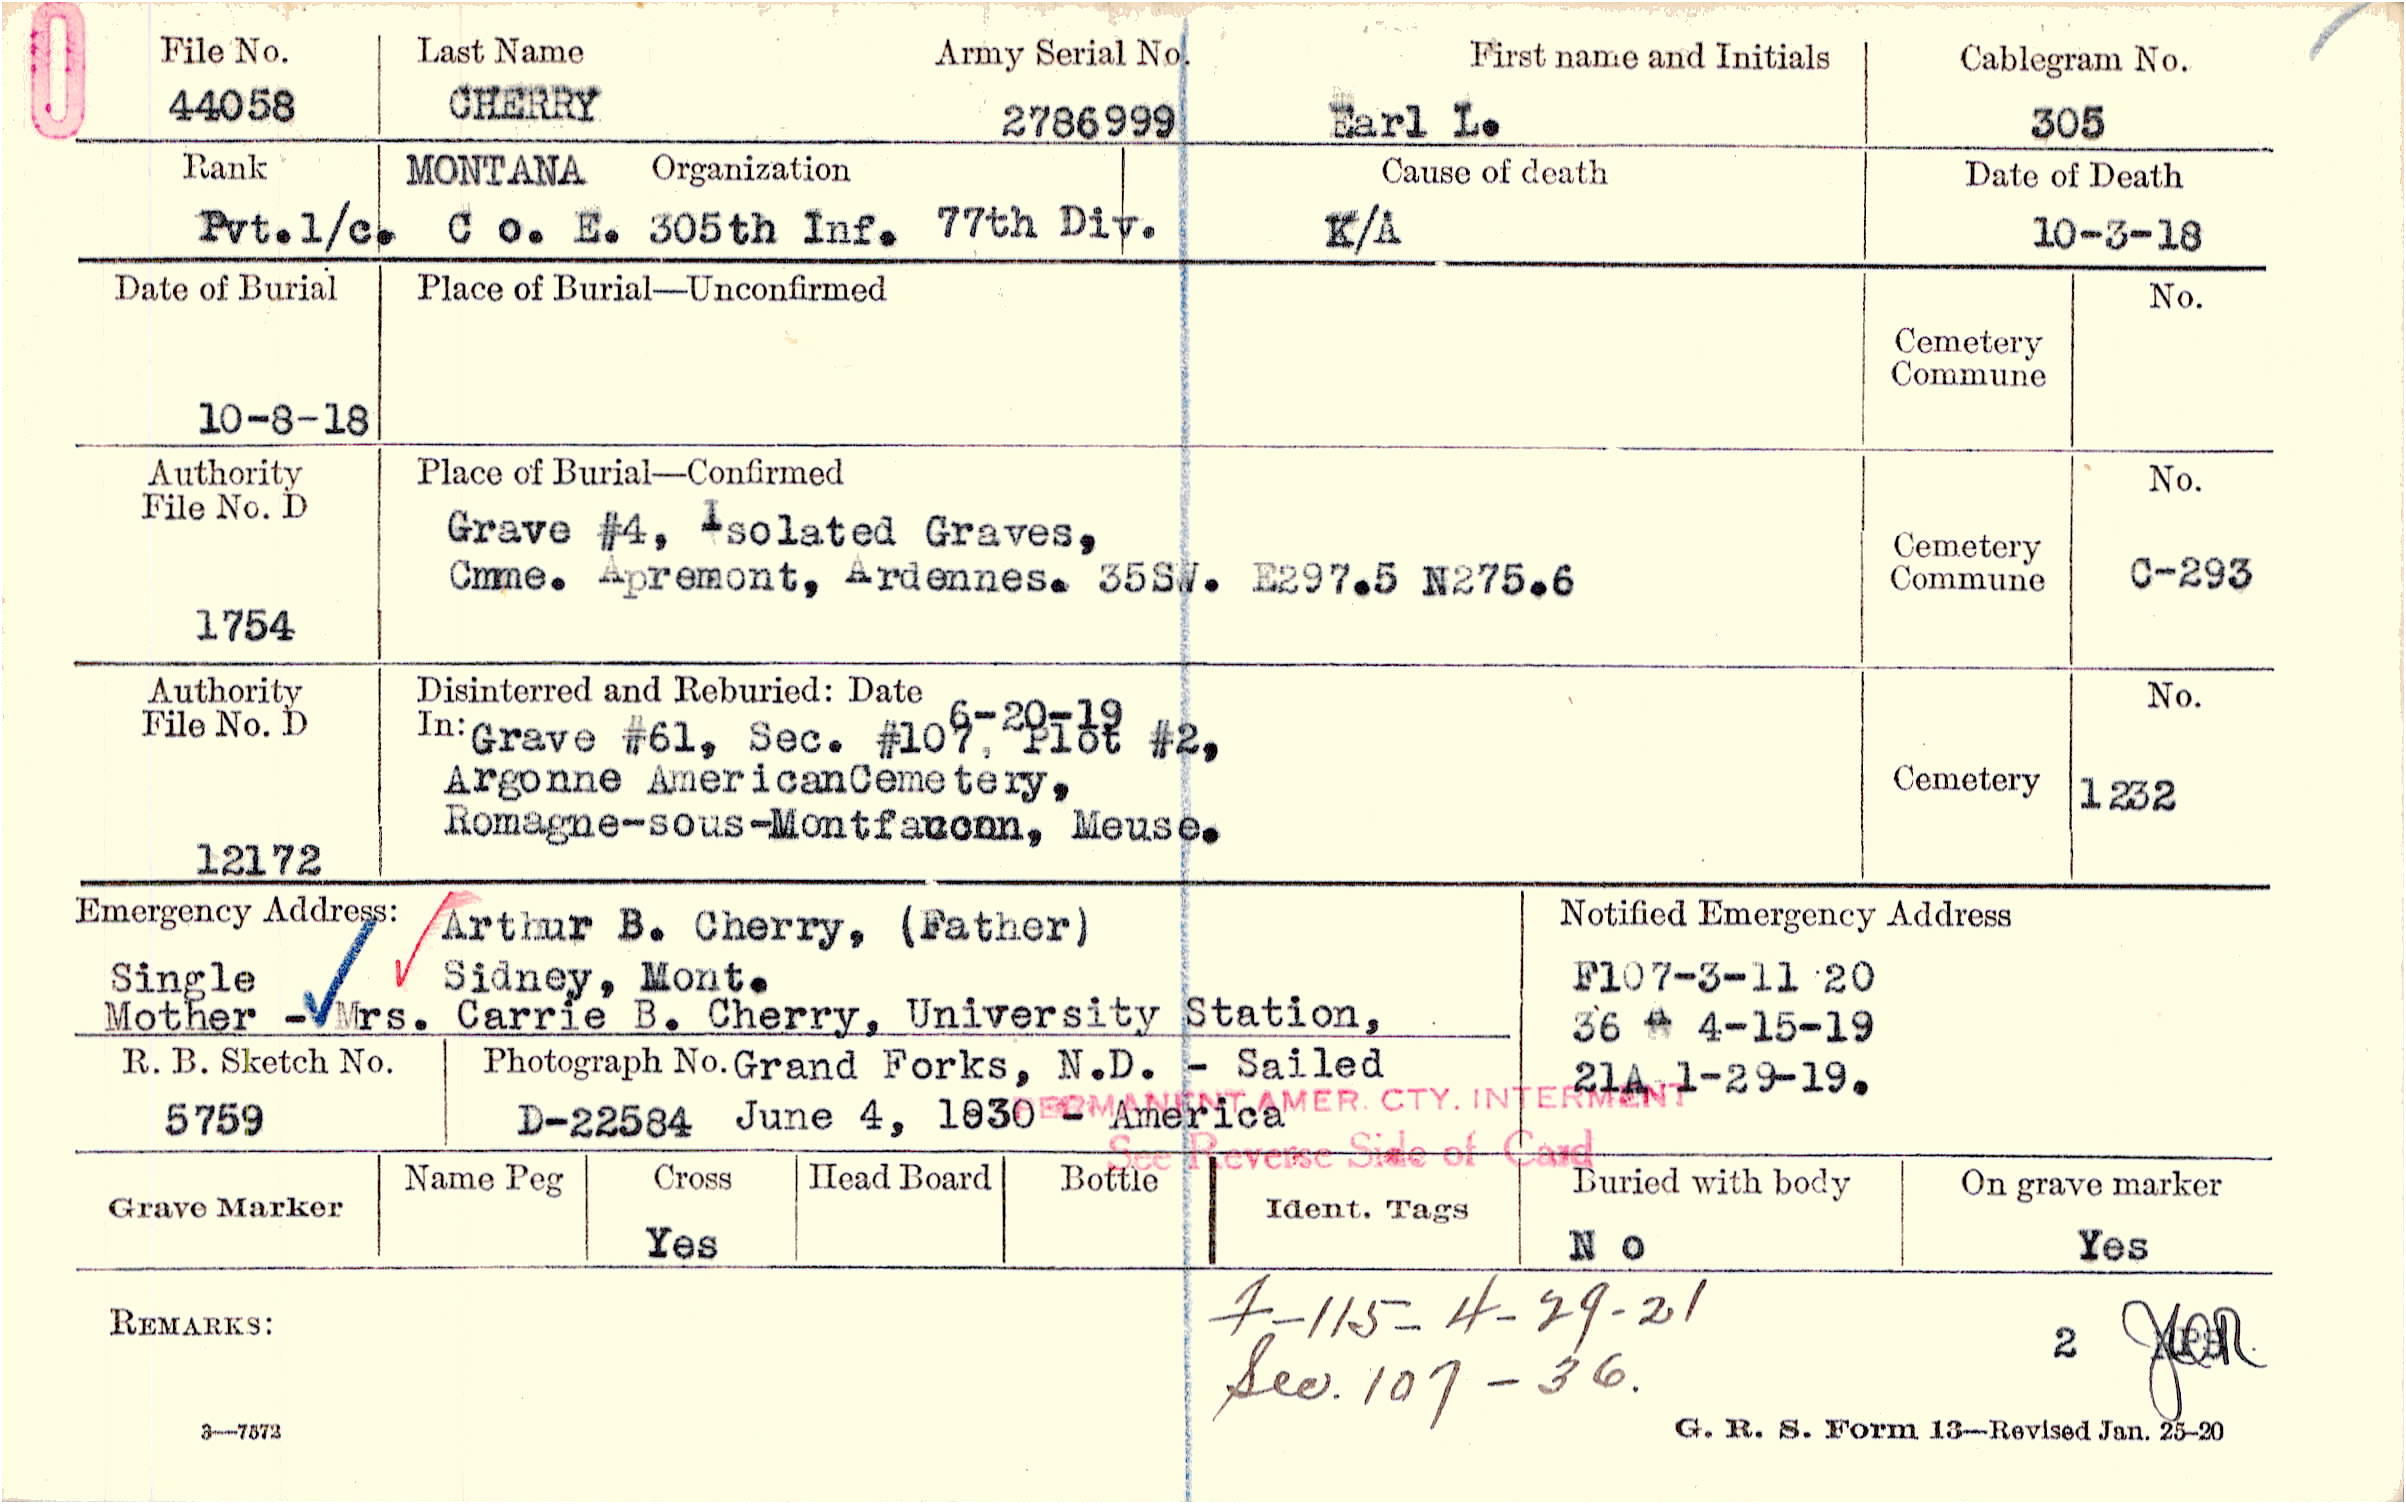 File No. Last Name Army Serial No. First name and Initials Cablegram No.
44058 CHERRY 2786999 Earl L. 305
Rank MONTANA Organization Cause of death Date of Death
Pvt.1/c. C o. E. 305th Inf. 77th Div. K/A 10-3-18
Date of Burial Place of Burial—Unconfirmed No.
Cemetery
Commune
10-8-18
Authority Place of Burial—Confirmed No.
File No. D
Grave #4, Isolated Graves,
Cemetery
Cmme. Apremont, Ardennes. 35SW. E297.5 N275.6
Commune C-293
1754
Authority Disinterred and Reburied: Date No.
File No. D 6-20-19
In: Grave #61, Sec. #107, Plot #2,
Argonne AmericanCemetery, Cemetery 1232
Romagne-sous-Montfaucon, Meuse.
12172
Emergency Address: Arthur B. Cherry, (Father) Notified Emergency Address
Single Sidney, Mont. F107-3-11 20
Mother - Mrs. Carrie B. Cherry, University Station, 36 4-15-19
R. B. Sketch No. Photograph No. Grand Forks, N.D. - Sailed 21A 1-29-19.
PERMANENT AMER. CTY. INTERMENT
5759 D-22584 June 4, 1930 - America
See Reverse Side of Card
Grave Marker Name Peg Cross Head Board Bottle Ident. Tags Buried with body On grave marker
Yes N o Yes
REMARKS: 7-115- 4-29-21
2
Sec. 107-36.
3—7572 G. R. S. Form 13—Revised Jan. 25-20